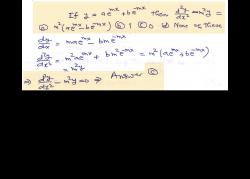 If y = ae^mx + be^-mx then d²y/dx² - m²y =
ⓐ m²(ae^mx - be^-mx) ⓑ 1 ⓒ 0 ⓓ None of these
dy/dx = mae^mx - bme^-mx
d²y/dx² = m²ae^mx + bm²e^-mx = m²(ae^mx + be^-mx)
= m²y
⇒ d²y/dx² - m²y = 0 Answer ⓒ